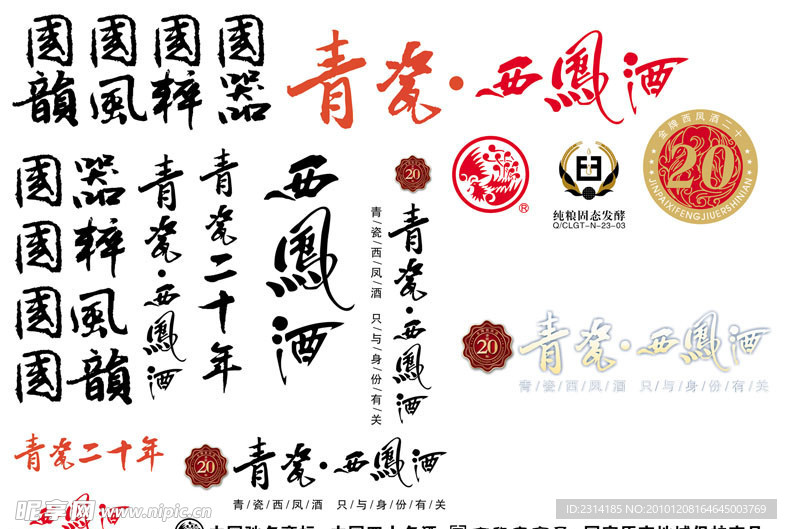 國韻 國風 國粹 國器
青瓷·西鳳酒
金牌西凤酒二十
20
JINPAIXIFENGJIUERSHINIAN
®
纯粮固态发酵
Q/CLGT-N-23-03
國器
國粹
國風
國韻
青瓷·西鳳酒
青瓷二十年
西鳳酒
20
青/瓷/西/凤/酒 只/与/身/份/有/关
青瓷·西鳳酒
20
青瓷·西鳳酒
青/瓷/西/凤/酒 只/与/身/份/有/关
青瓷二十年
20
青瓷·西鳳酒
青/瓷/西/凤/酒 只/与/身/份/有/关
西鳳酒
昵享网 www.nipic.cn
ID:2314185 NO:20101208164645003769